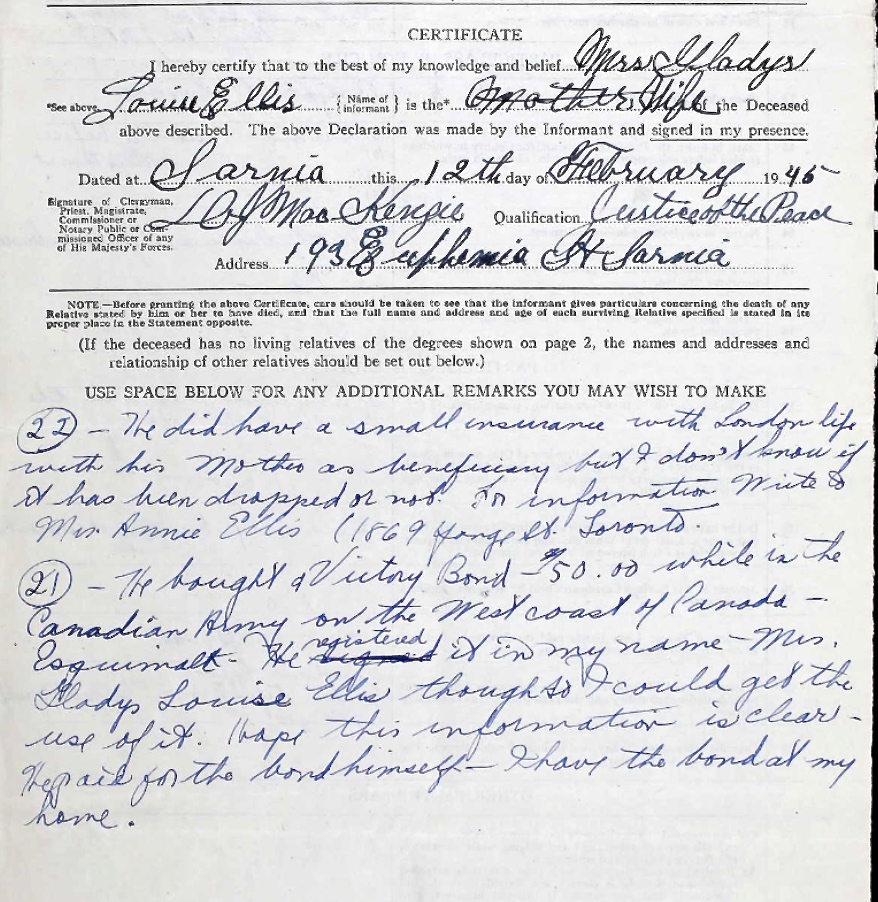 CERTIFICATE
I hereby certify that to the best of my knowledge and belief Mrs Gladys
*See above Louise Ellis { Name of informant } is the* Mother Wife of the Deceased
above described. The above Declaration was made by the Informant and signed in my presence.
Dated at Sarnia this 12th day of February 1945
Signature of Clergyman,
Priest, Magistrate,
Commissioner or
Notary Public or Com-
missioned Officer of any
of His Majesty's Forces.
MacKenzie Qualification Justice of the Peace
Address 193 Euphemia St Sarnia
NOTE.—Before granting the above Certificate, care should be taken to see that the informant gives particulars concerning the death of any
Relative stated by him or her to have died, and that the full name and address and age of each surviving Relative specified is stated in its
proper place in the Statement opposite.
(If the deceased has no living relatives of the degrees shown on page 2, the names and addresses and
relationship of other relatives should be set out below.)
USE SPACE BELOW FOR ANY ADDITIONAL REMARKS YOU MAY WISH TO MAKE
22 - He did have a small insurance with London life
with his Mother as beneficiary but I don't know if
it has been dropped or not. For information Write to
Mrs Annie Ellis (1869 Yonge St. Toronto
21 - He bought a Victory Bond - $50.00 while in the
Canadian Army on the West coast of Canada -
Esquimalt - He signed registered it in my name - Mrs.
Gladys Louise Ellis thought so I could get the
use of it. Hope this information is clear -
He paid for the bond himself - I have the bond at my
home.